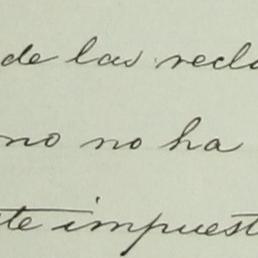 de las recla
no no ha
te impuest